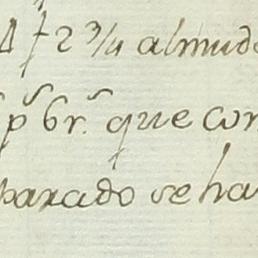 2 3/4 almud
pˢ 6 rˢ. que con
parado se ha